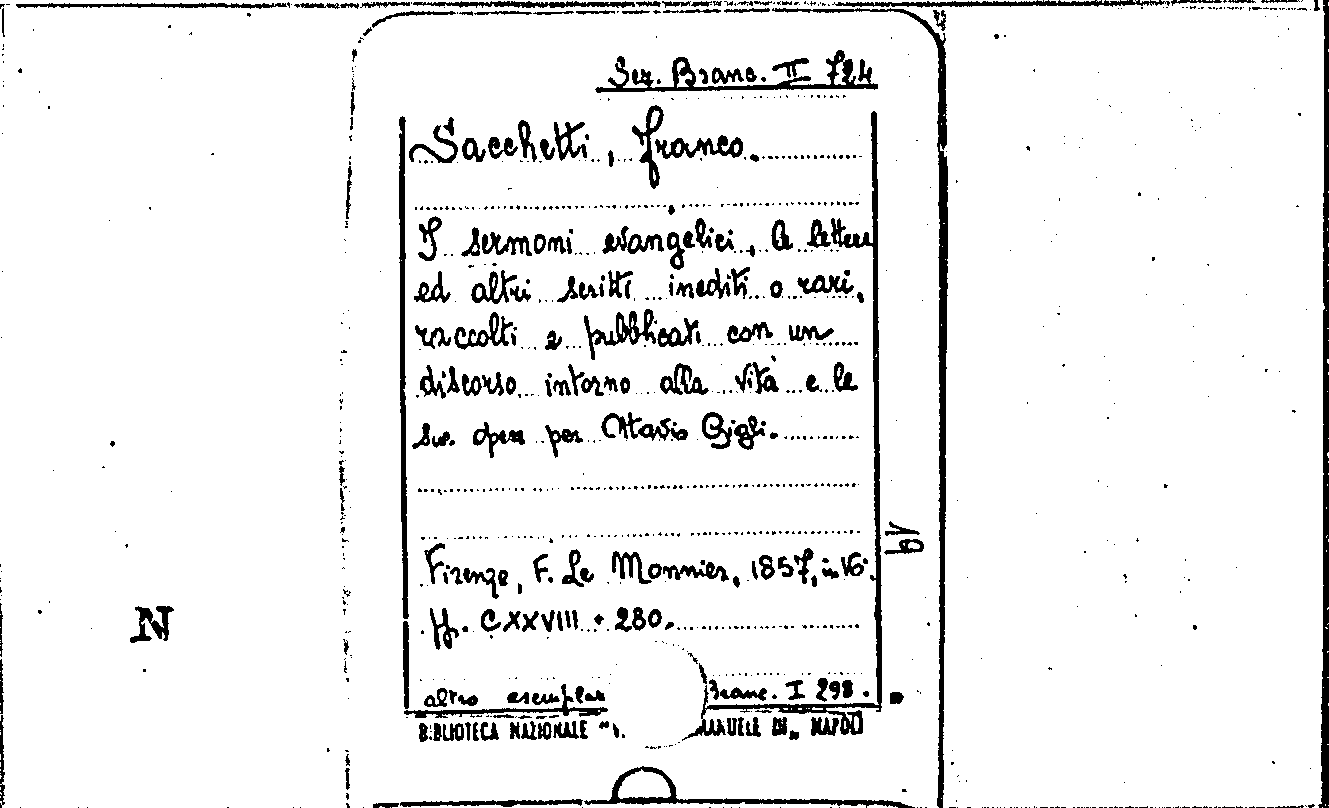 Sez. Branc. II 724
Sacchetti, Franco.
I sermoni evangelici, le lettere
ed altri scritti inediti o rari,
raccolti e pubblicati con un
discorso intorno alla vità e le
sue opere per Ottavio Gigli.
Firenze, F. Le Monnier, 1857, in 16°.
pp. CXXVIII + 280.
altro esemplar Branc. I 298.
BIBLIOTECA NAZIONALE "V. MANUELE III„ NAPOLI
N